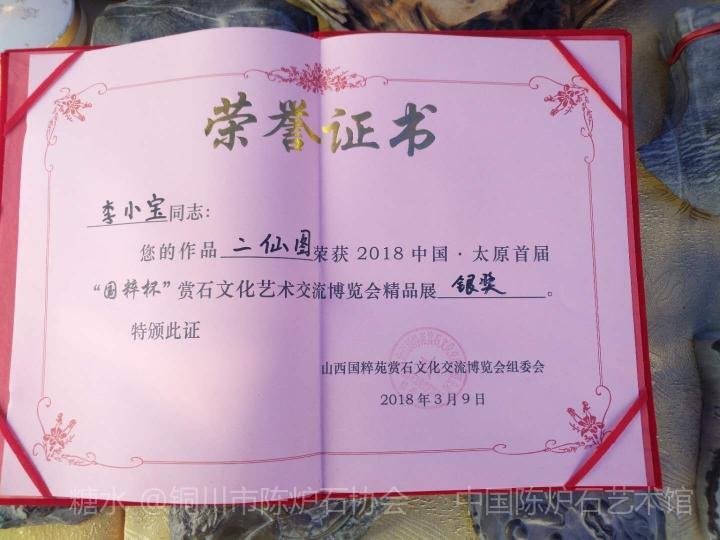 荣誉证书
李小宝同志:
您的作品 二仙图荣获2018中国·太原首届
“国粹杯”赏石文化艺术交流博览会精品展 银奖。
特颁此证
山西国粹苑赏石文化交流博览会组委会
2018年3月9日
糖水 @铜川市陈炉石协会 中国陈炉石艺术馆